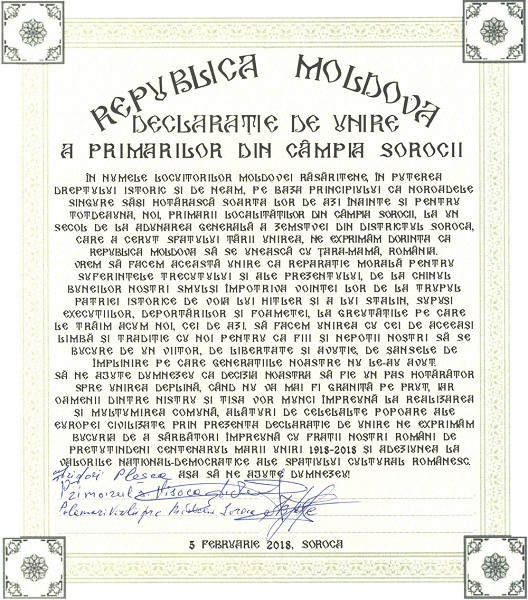 REPUBLICA MOLDOVA
DECLARAȚIE DE UNIRE
A PRIMARILOR DIN CÂMPIA SOROCII
ÎN NUMELE LOCUITORILOR MOLDOVEI RĂSĂRITENE, ÎN PUTEREA
DREPTULUI ISTORIC ȘI DE NEAM, PE BAZA PRINCIPIULUI CA NOROADELE
SINGURE SĂȘI HOTĂRASCĂ SOARTA LOR DE AZI ÎNAINTE ȘI PENTRU
TOTDEAVNA, NOI, PRIMARII LOCALITĂȚILOR DIN CÂMPIA SOROCII, LA UN
SECOL DE LA ADUNAREA GENERALĂ A ZEMSTVEI DIN DISTRICTUL SOROCA,
CARE A CERUT SFATULUI ȚĂRII UNIREA, NE EXPRIMĂM DORINȚA CA
REPUBLICA MOLDOVA SĂ SE UNEASCĂ CU ȚARA-MAMĂ, ROMÂNIA.
VREM SĂ FACEM ACEASTĂ UNIRE CA REPARAȚIE MORALĂ PENTRU
SUFERINȚELE TRECUTULUI ȘI ALE PREZENTULUI, DE LA CHINUL
BUNEILOR NOSTRI SMULȘI ÎMPOTRIVA VOINȚEI LOR DE LA TRUPUL
PATRIEI ISTORICE DE VOIA LUI HITLER ȘI A LUI STALIN, SUPUȘI
EXECUȚIILOR, DEPORTĂRILOR ȘI FOAMETEI, LA GREUTĂȚILE PE CARE
LE TRĂIM ACUM NOI, CEI DE AZI. SĂ FACEM UNIREA CU CEI DE ACEEAȘI
LIMBĂ ȘI TRADIȚIE CU NOI PENTRU CA FIII ȘI NEPOȚII NOȘTRI SĂ SE
BUCURE DE UN VIITOR, DE LIBERTATE ȘI AVUȚIE, DE ȘANSELE DE
ÎMPLINIRE PE CARE GENERAȚIILE NOASTRE NU LE-AU AVUT.
SĂ NE AJUTE DUMNEZEU CA DECIZIA NOASTRĂ SĂ FIE UN PAS HOTĂRÂTOR
SPRE UNIREA DEPLINĂ, CÂND NU VA MAI FI GRANIȚĂ PE PRUT, IAR
OAMENII DINTRE NISTRU ȘI TISA VOR MUNCI ÎMPREUNĂ LA REALIZAREA
ȘI MULȚUMIREA COMUNĂ, ALĂTURI DE CELELALTE POPOARE ALE
EUROPEI CIVILIZATE. PRIN PREZENTA DECLARAȚIE DE UNIRE NE EXPRIMĂM
BUCURIA DE A SĂRBĂTORI ÎMPREUNĂ CU FRAȚII NOȘTRI ROMÂNI DE
PRETUTINDENI CENTENARUL MARII UNIRI 1918-2018 ȘI ADEZIUNEA LA
VALORILE NAȚIONAL-DEMOCRATICE ALE SPAȚIULUI CULTURAL ROMÂNESC.
AȘA SĂ NE AJUTE DUMNEZEU!
5 FEBRUARIE 2018, SOROCA